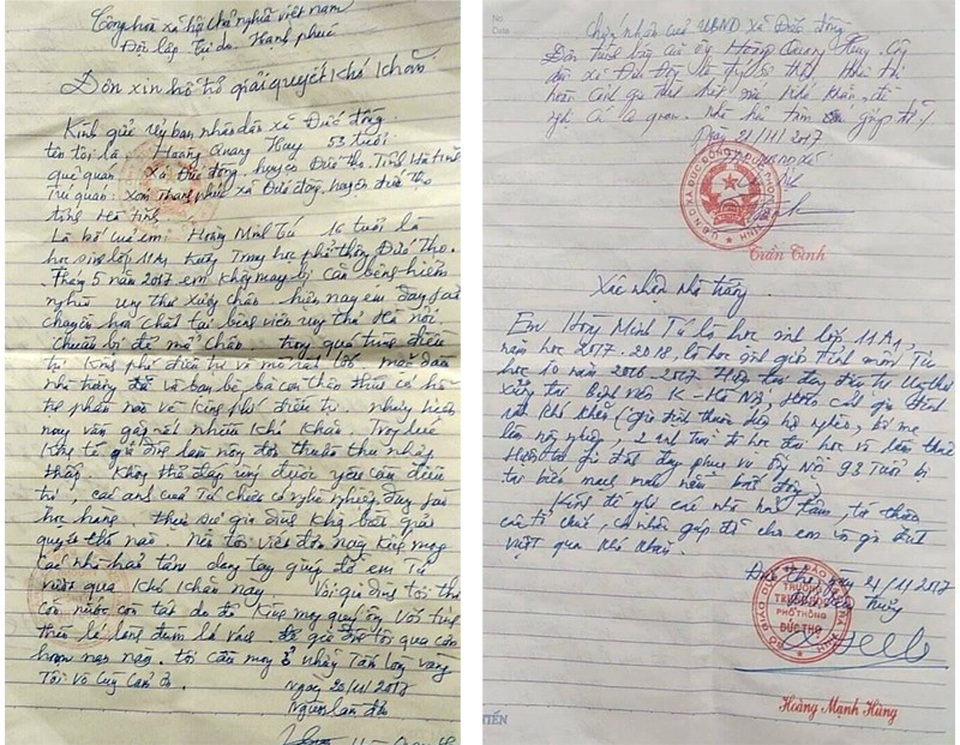 Cộng hòa xã hội chủ nghĩa việt nam
Độc lập Tự do Hạnh phúc
Đơn xin hỗ trợ giải quyết khó khăn
Kính gửi ủy ban nhân dân xã Đức đồng
tên tôi là, Hoàng Quang Huy 53 tuổi
quê quán. Xã Đức đồng, huyện Đức thọ, Tỉnh Hà tĩnh
Trú quán: Xóm Thanh phúc xã Đức đồng, huyện đức thọ
tỉnh Hà tĩnh.
Là bố của em: Hoàng Minh Tú 16 tuổi là
học sinh lớp 11A1 trường Trung học phổ thông Đức Thọ.
Tháng 5 năm 2017 em không may bị căn bệnh hiểm
nghèo ung thư xương chân. hiện nay em đang
chuyền hoá chất tại bệnh viện ung thư Hà nội.
chuẩn bị để mổ chân. trong quá trình điều
trị kinh phí điều trị và mổ rất lớn mặc dầu
nhà trường và bạn bè bà con thân thuộc có hỗ
trợ phần nào về kinh phí điều trị. nhưng hiện
nay vẫn gặp rất nhiều khó khăn. Trong lúc
kinh tế gia đình làm nông đơn thuần thu nhập
thấp. Không thể đáp ứng được yêu cầu điều
trị, các anh của Tú chưa có nghề nghiệp đang
học hàng. thực sự gia đình không biết giải
quyết thế nào. Nên tôi viết đơn này kính mong
các nhà hảo tâm dang tay giúp đỡ em Tú
vượt qua khó khăn này. Với gia đình tôi thì
còn nước còn tát do đó kính mong quý ông với
lá lành đùm lá rách gia đình tôi qua cơn
hoạn nạn này. tôi cầu mong ở những Tấm lòng vàng
Tôi vô cùng cảm ơn.
Ngày 20/11/2017
Người làm đơn
Chứng nhận của UBND xã Đức đồng
Đơn trình bày của ông Hoàng Quang Huy. Công
dân xã Đức Đồng là đúng sự thật, hiện tại
hoàn cảnh gia đình hết sức khó khăn, đề
nghị các cơ quan. nhà hảo tâm giúp đỡ./.
Ngày 21/11/2017
U.B.N.D XÃ ĐỨC ĐỒNG
Trần Tình
Xác nhận nhà trường.
Em Hoàng Minh Tú là học sinh lớp 11A1,
năm học 2017-2018, là học sinh giỏi tỉnh môn Tin
học 10 năm 2016-2017. Hiện tại đang điều trị Ung thư
xương tại bệnh viện K-Hà Nội. Hoàn cảnh gia đình
rất khó khăn (gia đình thuộc diện hộ nghèo, bố mẹ
làm nông nghiệp, 2 anh trai đi học đại học và làm thuê
Hiện tại gia đình đang phục vụ ông Nội 93 tuổi bị
tai biến mạch máu nằm bất động).
Kính đề nghị các nhà hảo tâm, từ thiện
các tổ chức, cá nhân giúp đỡ cho em và gia đình
vượt qua khó khăn.
Đức Thọ, ngày 21/11/2017
TRƯỜNG
TRUNG HỌC
PHỔ THÔNG
ĐỨC THỌ
Hoàng Mạnh Hùng